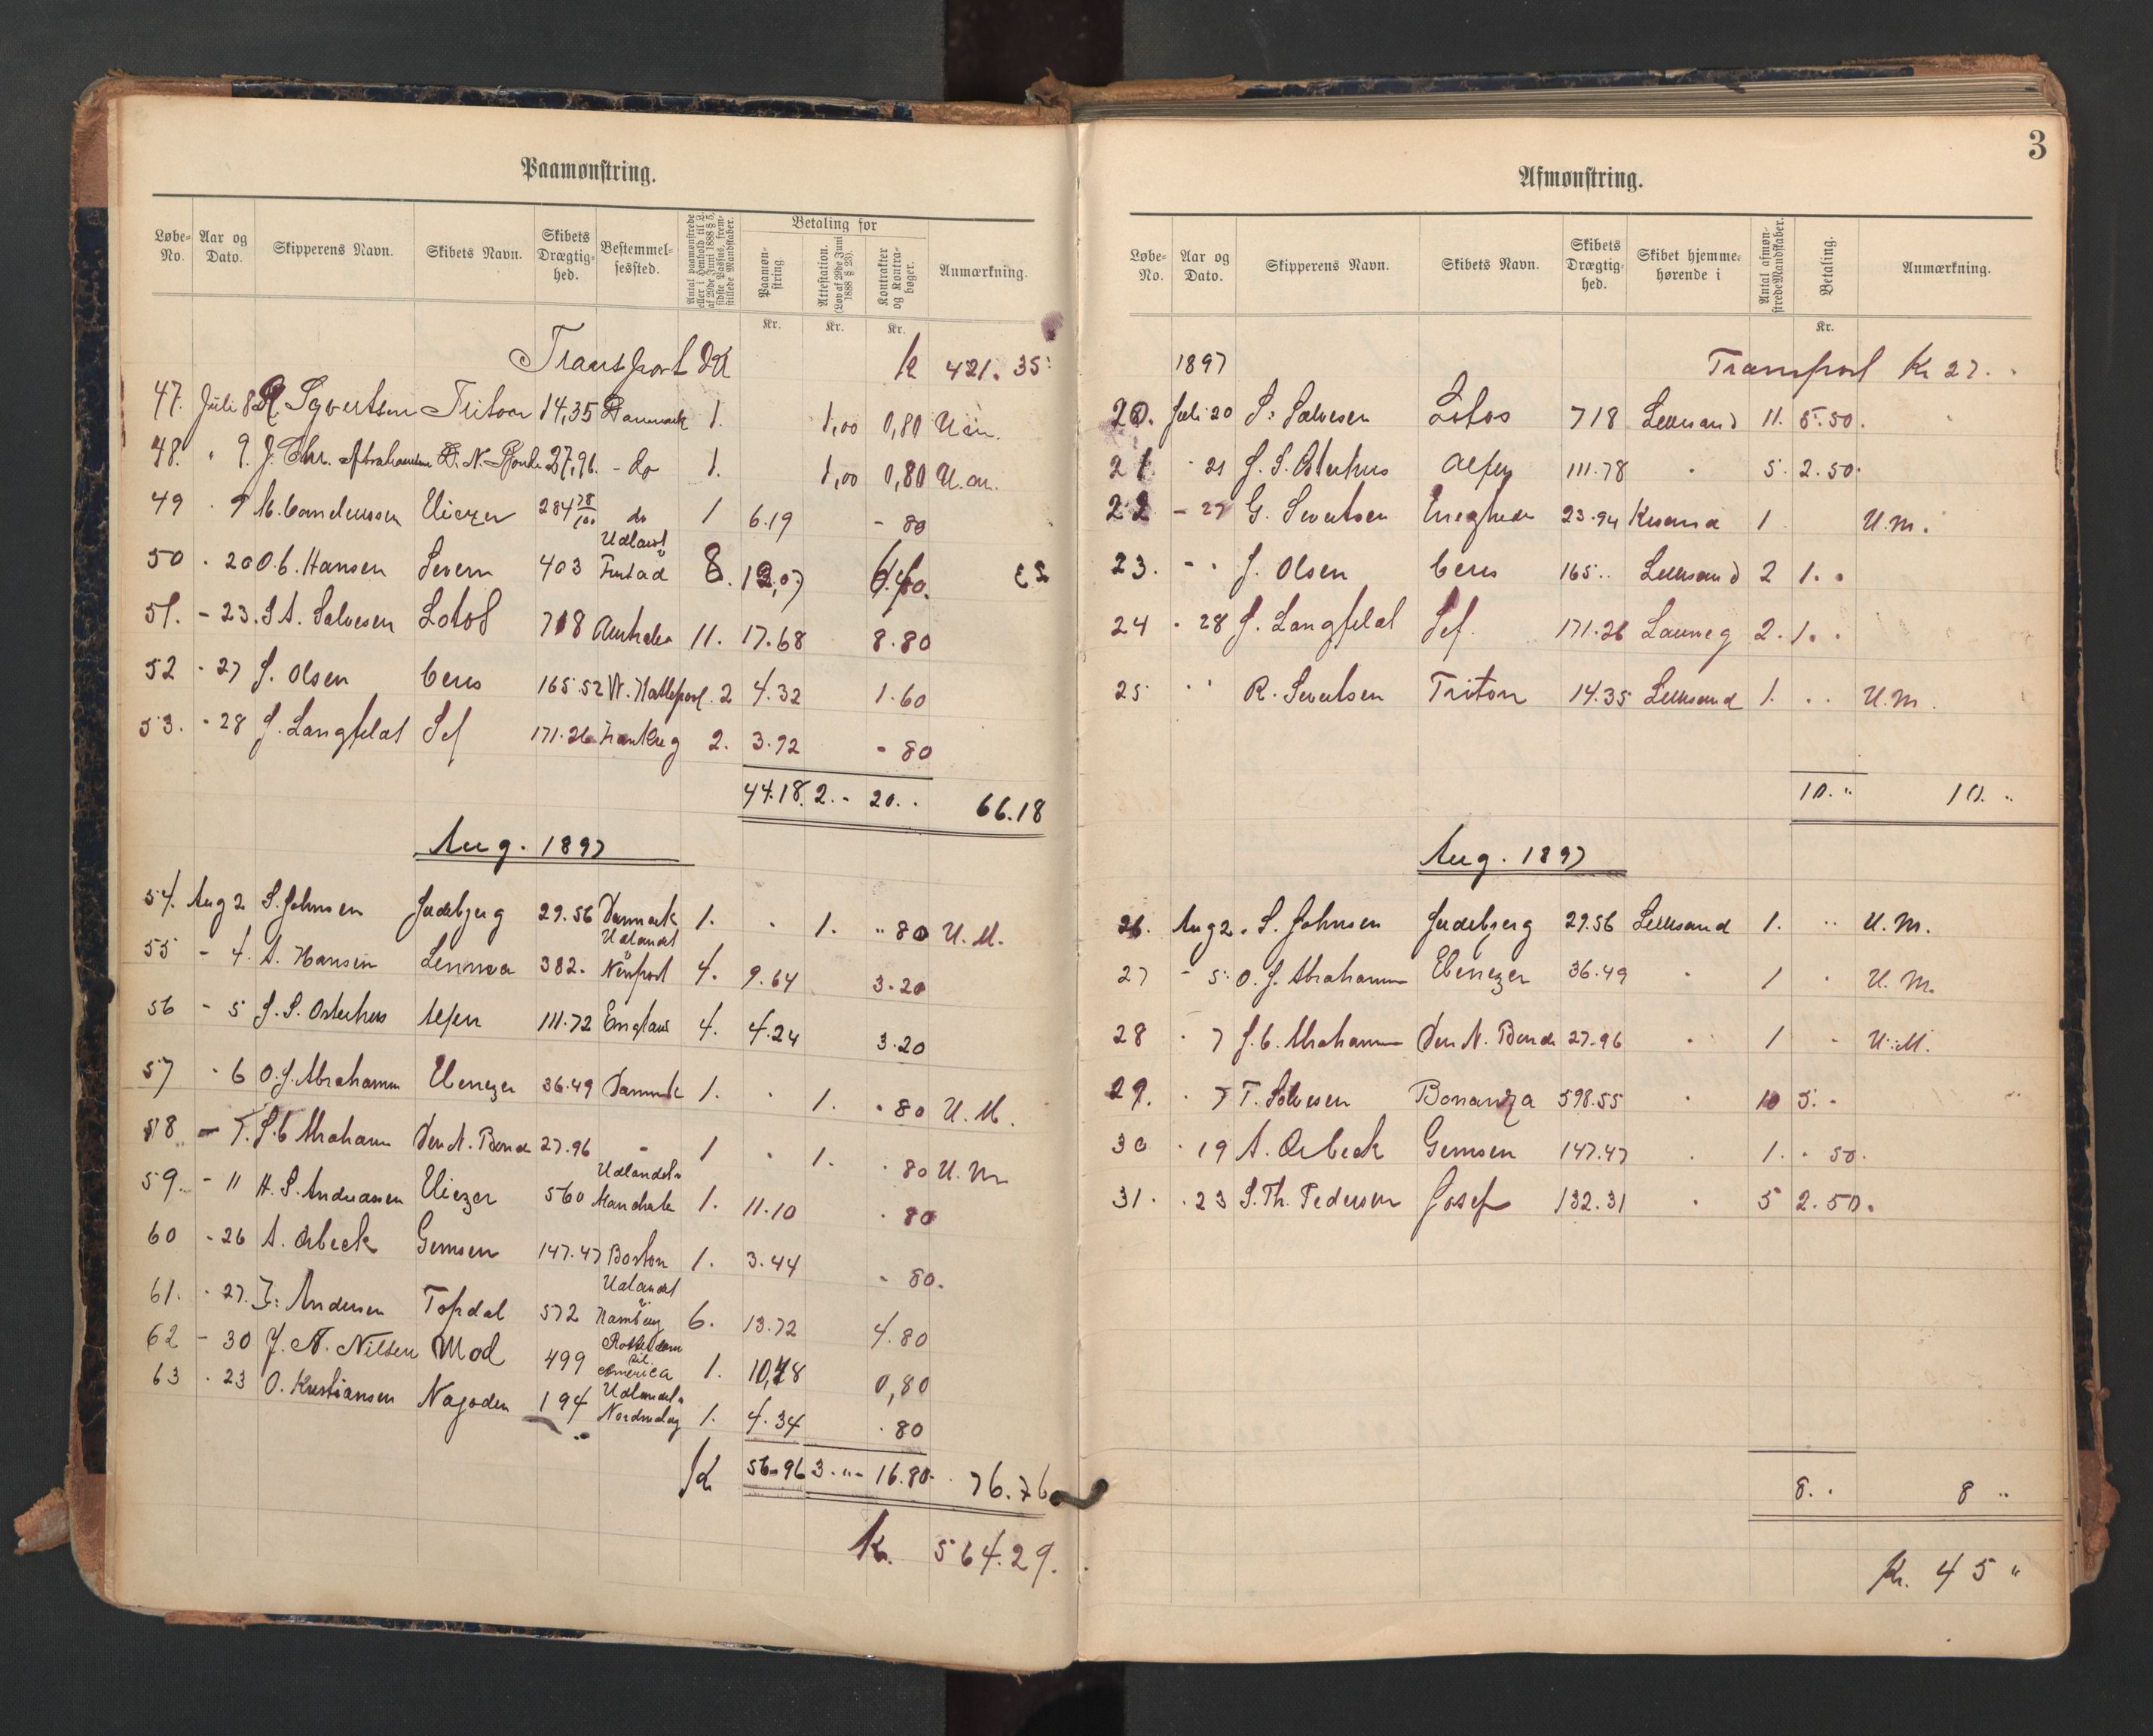 3
Paamønstring.
Løbe-No. Aar og Dato. Skipperens Navn. Skibets Navn. Skibets Drægtig-hed. Bestemmel-sessted. Antal paamønstrede eller i Henhold til L. af 29de Juni 1888 § 5, sidste Passus, frem-stillede Mandskaber. Betaling for Paamøn-string. Attestation. (Lov af 29de Juni 1888 § 23). Kontrakter og Kontra-bøger. Anmærkning.
Kr. Kr. Kr.
Transport K 421.35
47. Juli 8 R. Syvertsen Triton 14,35 Danmark 1. 1,00 0,80 U.m.
48. " 9. J. Chr. Abrahamsen D. N. Bonde 27,96 - do 1. 1,00 0,80 U.m.
49 " 9 Eliezer 284 78/100 do 1 6.19 - 80
50 . 20 O. C. Hansen Severn 403 Udlandet 8. 6.40.
51. - 23. S. A. Salvesen Lotos 718 Australien 11. 17.68 8.80
52 - 27 J. Olsen Ceres 165.52 W. Hartlepool. 2 4.32 1.60
53. - 28 J. Langfeldt Sef 171.26 Frankrig 2. 3.92 - 80
44.18. 2.- 20.. 66.18
Aug. 1897
54. Aug 2 S. Johnsen Jædebjerg 29.56 Danmark 1. . 1. " 80 U.M.
55 - 4. A. Hansen Lennoa 382. Udlandet Newport 4. 9.64 3.20
56 - 5 J. S. Osterhus Alfen 111.72 England 4. 4.24 3.20
57 - 6 O. J. Abrahamsen Ebenezer 36.49 Danmark 1. . 1. . 80 U.M.
58 - 7. J. C. Abrahamsen Den N. Bonde 27.96 - 1 . 1. . 80 U.M
59. - 11 H. S. Andreasen Eliezer 560 Udlandet 1. 11.10 . 80
60 - 26 A. Ørbeck Gemsen 147.47 Boston 1. 3.44 - 80.
61. - 27. J. Andersen Topdal 572 Udlandet Hamburg 6. 13.72 4.80
62 - 30 J. N. Nilsen Mod 499 Rotterdam til America 1. 10,78 0,80
63 . 23 O. Kristiansen Nagoden 194 Udlandet 1. 4.34 . 80
K 56.96 3." - 16.80 76.76
Kr. 564.29.
Afmønstring.
Løbe-No. Aar og Dato. Skipperens Navn. Skibets Navn. Skibets Drægtig-hed. Skibet hjemme-hørende i Antal afmøn-strede Mandskaber. Betaling. Anmærkning.
Kr.
1897 Transport Kr 27. "
20. Juli 20 S. Salvesen Lotos 718 Lillesand 11. 5.50.
21 - 21 J. S. Osterhus Alfen 111.78 " 5. 2.50.
22 - 27 G. Sivertsen 23.94 Krsand 1 U.M.
23. - " J. Olsen Ceres 165.. Lillesand 2 1. "
24 - 28 J. Langfeldt Sef. 171.26 Laurvig 2. 1. "
25 " " R. Sivertsen Triton 14.35 Lillesand 1. .. U.M.
10. " 10. "
Aug. 1897
26. Aug 2. S. Johnsen Jædebjerg 29.56 Lillesand 1. " U.M.
27 - 5. O. J. Abrahamsen Ebenezer 36.49 " 1 . U.M.
28 . 7 J. C. Abrahamsen Den N. Bonde 27.96 " 1 - U.M.
29. . 7 T. Salvesen Bonanza 598.55 " 10 5. -
30 . 19 A. Ørbeck Gemsen 147.47 . 1. . 50.
31. . 23 S. Th. Pedersen Josef 132.31 " 5 2.50.
8. . 8 "
Kr. 45 "